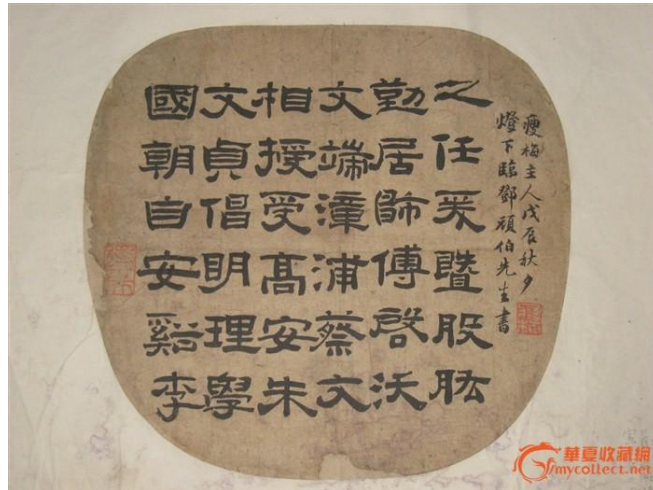 國朝自安谿李
文貞倡明理學
相授受高安朱
文端漳浦蔡文
勤居師傅啓沃
之任爰暨股肱
瘦梅主人戊辰秋夕
燈下臨鄧頑伯先生書
華夏收藏網
mycollect.net